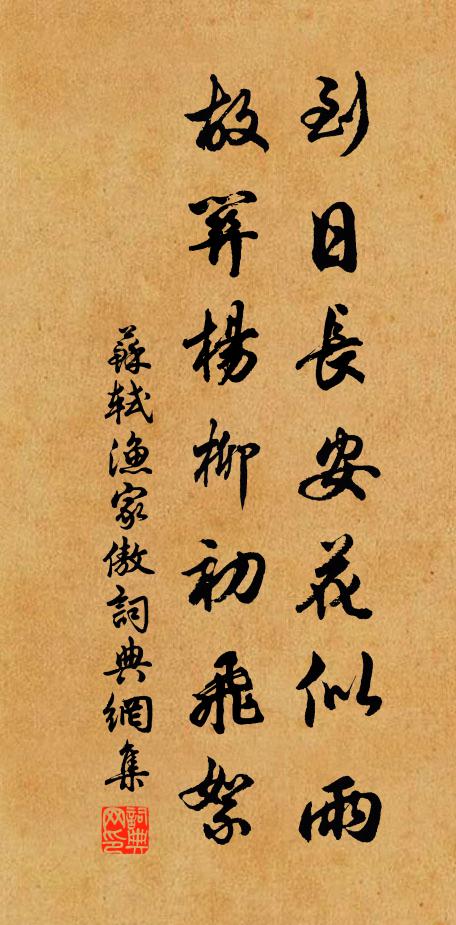 到日長安花似雨
故關楊柳初飛絮
蘇軾漁家傲詞典網集
詞典
网印